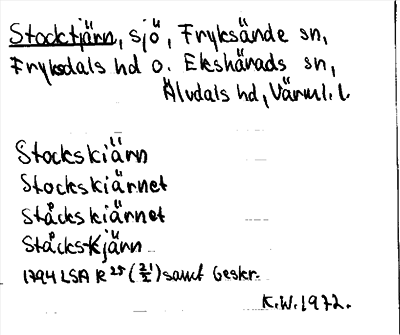 Stocktjärn, sjö, Fryksände sn,
Fryksdals hd o. Ekshärads sn,
Älvdals hd, Värml. l.
Stockskiärn
Stockskiärnet
Ståckskiärnet
Ståcks-Kjärn
1794 LSA R 25 (21/2) samt beskr.
K.W. 1972.